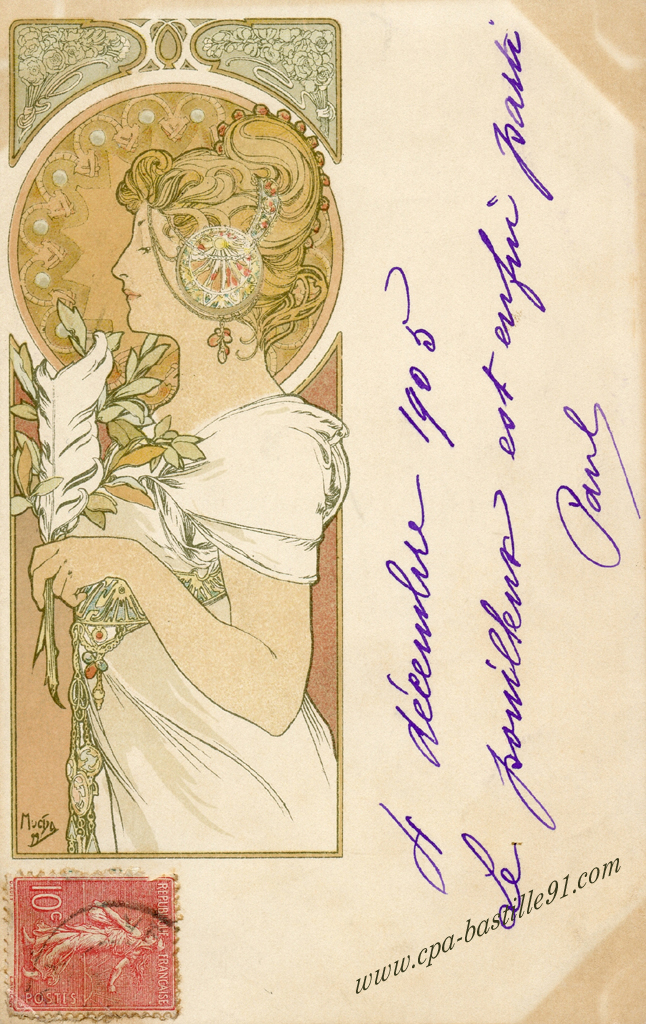 4 décembre 1905
Le pouilleux est enfin parti
Paul
Mucha
99
10c
REPUBLIQUE FRANÇAISE
POSTES
www.cpa-bastille91.com